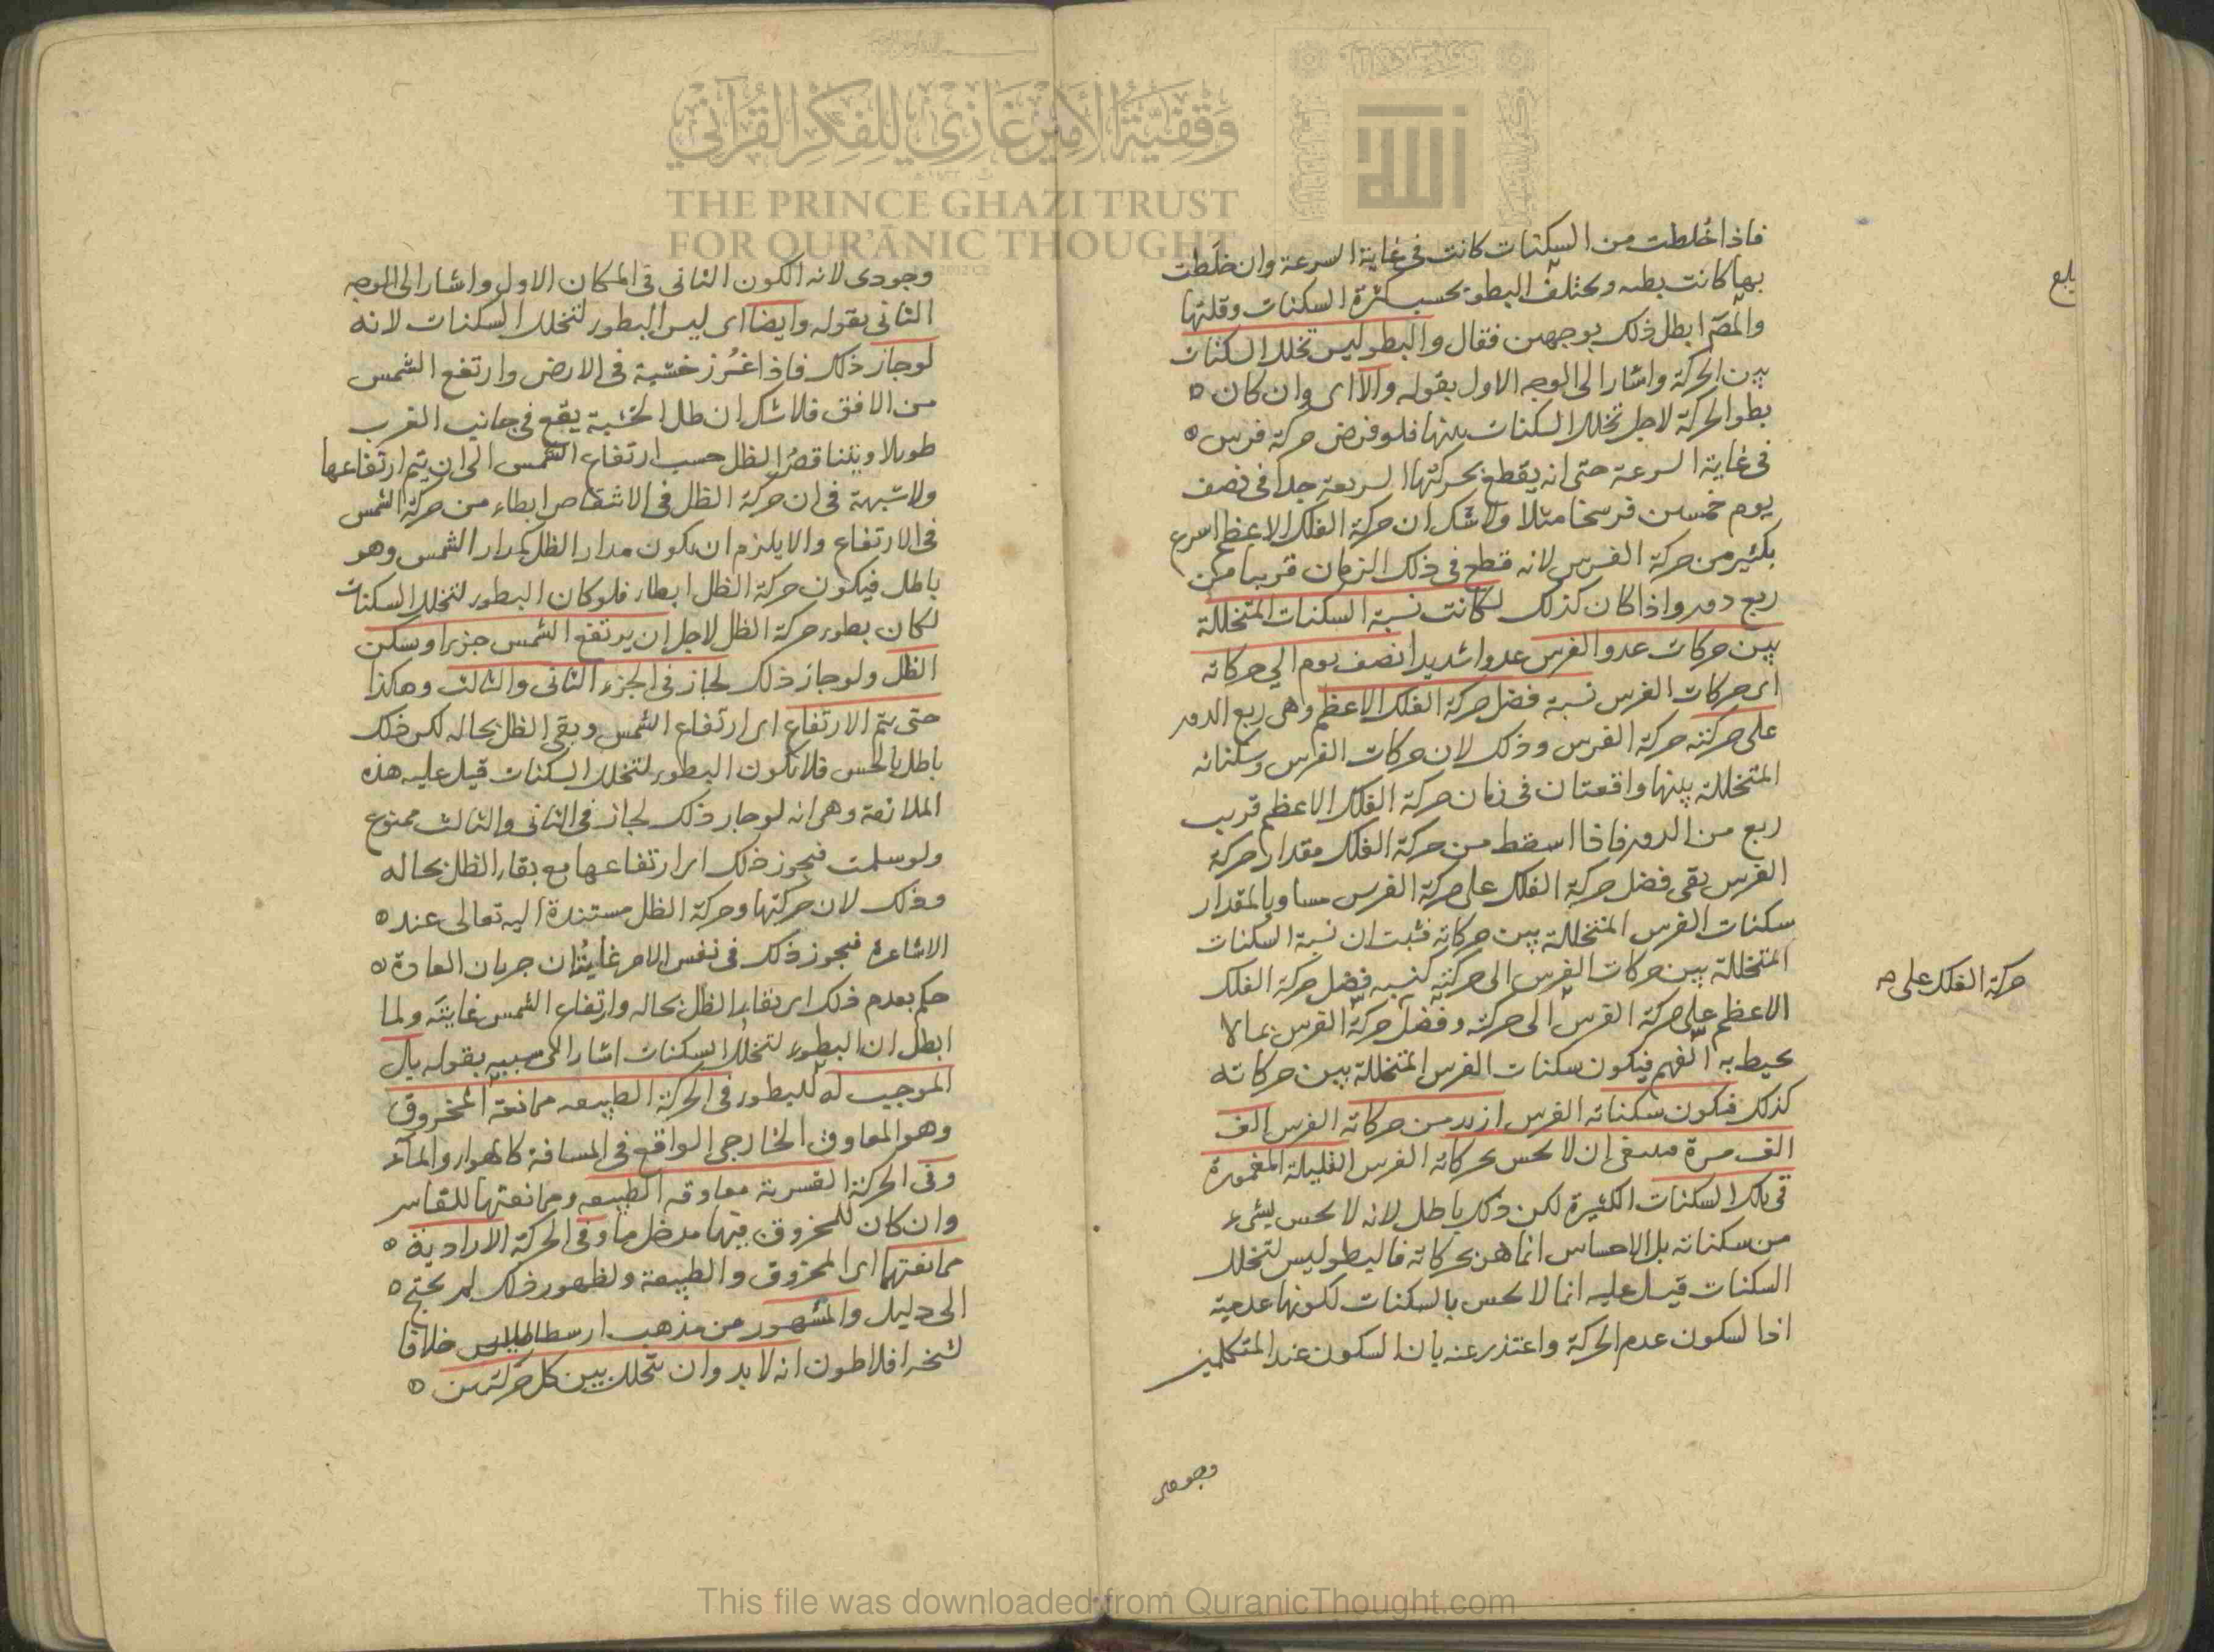 وقفية الأمير غازي للفكر القرآني
THE PRINCE GHAZI TRUST
FOR QUR'ĀNIC THOUGHT
فاذا خلطت من السكنات كانت فى غاية السرعة وان خلطت
بها كانت بطيه ويختلف البطؤ بحسب كثرة السكنات وقلتها
والمصّ ابطل ذلك بوجهين فقال والبطو ليس تخلل السكنات
بين الحركة واشار الى الوجه الاول بقوله والا اى وان كان
بطو الحركة لاجل تخلل السكنات بينها فلو فرض حركة فرس
فى غاية السرعة حتى انه يقطع بحركتها السريعة جدا فى نصف
يوم خمسين فرسخا مثلا ولا شك ان حركة الفلك الاعظم اسرع
بكثير من حركة الفرس لانه قطع فى ذلك الزمان قريبا من
ربع دوره واذا كان كذلك لكانت نسبة السكنات المتخللة
بين حركات عدو الفرس عدوا شديدا نصف يوم الى حركاته
اى حركات الفرس نسبة فضل حركة الفلك الاعظم وهى ربع الدور
على حركته حركة الفرس وذلك لان حركات الفرس وسكناته
المتخللة بينها واقعتان فى زمان حركة الفلك الاعظم قريب
ربع من الدور فاذا اسقط من حركة الفلك مقدار حركة
الفرس بقى فضل حركة الفلك على حركة الفرس مساويا لمقدار
سكنات الفرس المتخللة بين حركاته فثبت ان نسبة السكنات
المتخللة بين حركات الفرس الى حركته كنسبه فضل حركة الفلك
الاعظم على حركة الفرس الى حركته وفضل حركة الفرس بما لا
يحيط به الفهم فيكون سكنات الفرس المتخللة بين حركاته
كذلك فيكون سكناته الفرس ازيد من حركاته الفرس الف
الف مرة فينبغى ان لا يحس بحركاته الفرس القليلة المغمورة
فى تلك السكنات الكثيرة لكن ذلك باطل لانه لا يحس بشىء
من سكناته بل الاحساس انما هن بحركاته فالبطو ليس لتخلل
السكنات قيل عليه انما لا يحس بالسكنات لكونها عدمية
اذا لسكون عدم الحركة واعتذر عنه بان السكون عند المتكلمين
وجودى
بلغ
حركة الفلك على
وجودى لانه الكون الثانى فى المكان الاول واشار الى الوجه
الثانى بقوله وايضا اى ليس البطور لتخلل السكنات لانه
لو جاز ذلك فاذا غرز خشبة فى الارض وارتفع الشمس
من الافق فلا شك ان ظل الخشبة يقع فى جانب الغرب
طويلا ويتناقص الظل حسب ارتفاع الشمس الى ان يتم ارتفاعها
ولا شبهة فى ان حركة الظل فى الانتقاص ابطاء من حركة الشمس
فى الارتفاع والا يلزم ان يكون مدار الظل كمدار الشمس وهو
باطل فيكون حركة الظل ابطاء فلو كان البطور لتخلل السكنات
لكان بطور حركة الظل لاجل ان يرتفع الشمس جزءا وسكن
الظل ولو جاز ذلك لجاز فى الجزء الثانى والثالث وهكذا
حتى يتم الارتفاع اى ارتفاع الشمس وبقى الظل بحاله لكن ذلك
باطل بالحس فلا يكون البطور لتخلل السكنات قيل عليه هذه
الملازمة وهى انه لو جاز ذلك لجاز فى الثانى والثالث ممنوع
ولو سلمت فيجوز ذلك اى ارتفاعها مع بقاء الظل بحاله
وذلك لان حركتها وحركة الظل مستندة اليه تعالى عند
الاشاعرة فيجوز ذلك فى نفس الامر غايته ان جريان العادة
حكم بعدم ذلك اى بقاء الظل بحاله وارتفاع الشمس غايته ولما
ابطل ان البطور لتخلل السكنات اشار الى سببه بقوله بل
الموجب له للبطور فى الحركة الطبيعه ممانعة المخروق
وهو المعاوق الخارجى الواقع فى المسافة كالهواء والماء
وفى الحركة القسرية معاوقه الطبيعه وممانعتها للقاسر
وان كان للمخروق فيها مدخل ما وفى الحركة الارادية
ممانعتهما اى المخروق والطبيعة ولظهور ذلك لم يحتج
الى دليل والمشهور من مذهب ارسطاطاليس خلافا
لشيخه افلاطون انه لا بد وان يتخلل بين كل حركتين
This file was downloaded from QuranicThought.com